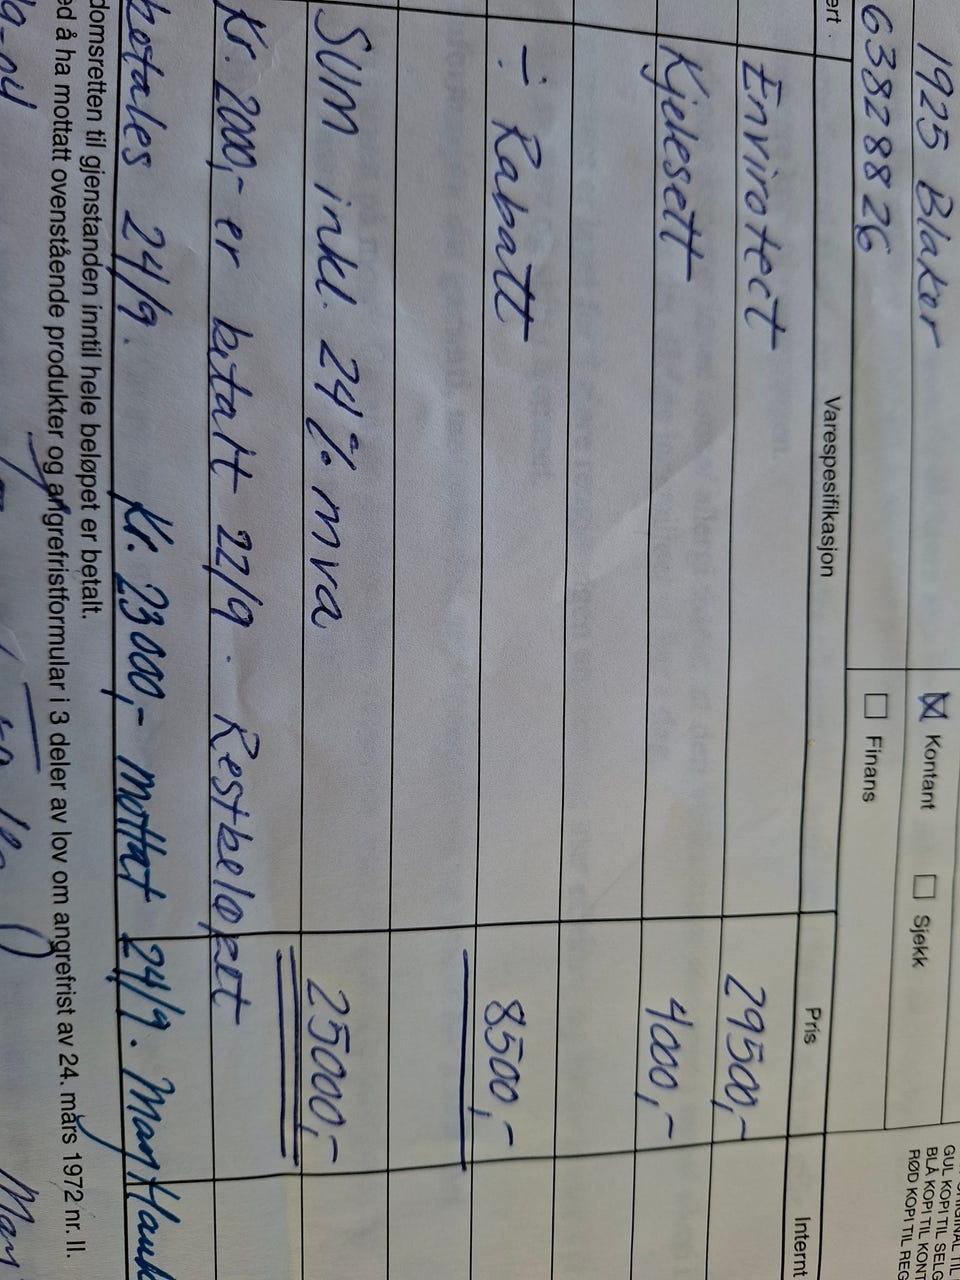 1925 Blaker
63828826
Kontant
Sjekk
Finans
GUL KOPI TIL SELG
BLÅ KOPI TIL KONT
RØD KOPI TIL REG
Varespesifikasjon Pris Internt
Envirotect 29500,-
Kjelesett 4000,-
÷ Rabatt 8500,-
SUM inkl. 24% mva 25000,-
Kr. 2000,- er betalt 22/9. Restbeløpet
betales 24/9. Kr. 23000,- mottat 24/9. May
domsretten til gjenstanden inntil hele beløpet er betalt.
å ha mottatt ovenstående produkter og angrefristformular i 3 deler av lov om angrefrist av 24. mars 1972 nr. II.